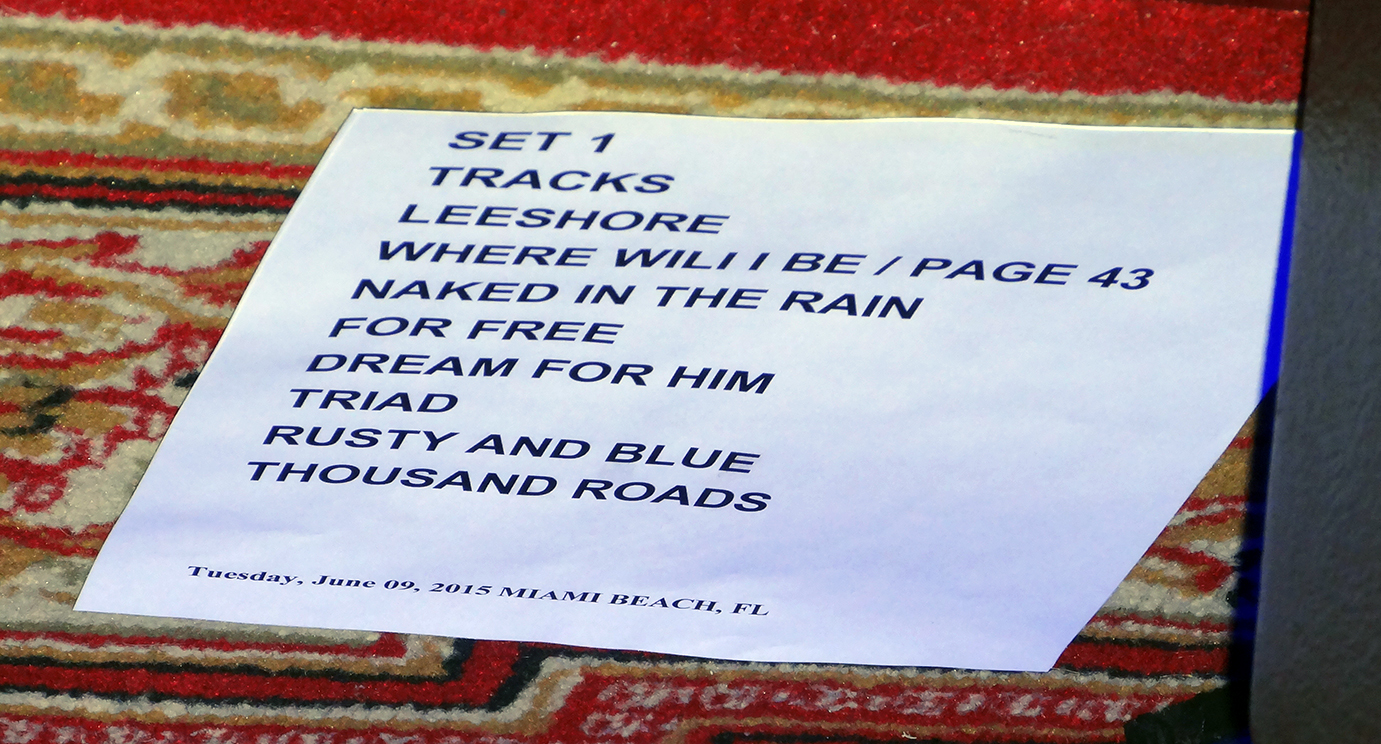 SET 1
TRACKS
LEESHORE
WHERE WILI I BE / PAGE 43
NAKED IN THE RAIN
FOR FREE
DREAM FOR HIM
TRIAD
RUSTY AND BLUE
THOUSAND ROADS
Tuesday, June 09, 2015 MIAMI BEACH, FL